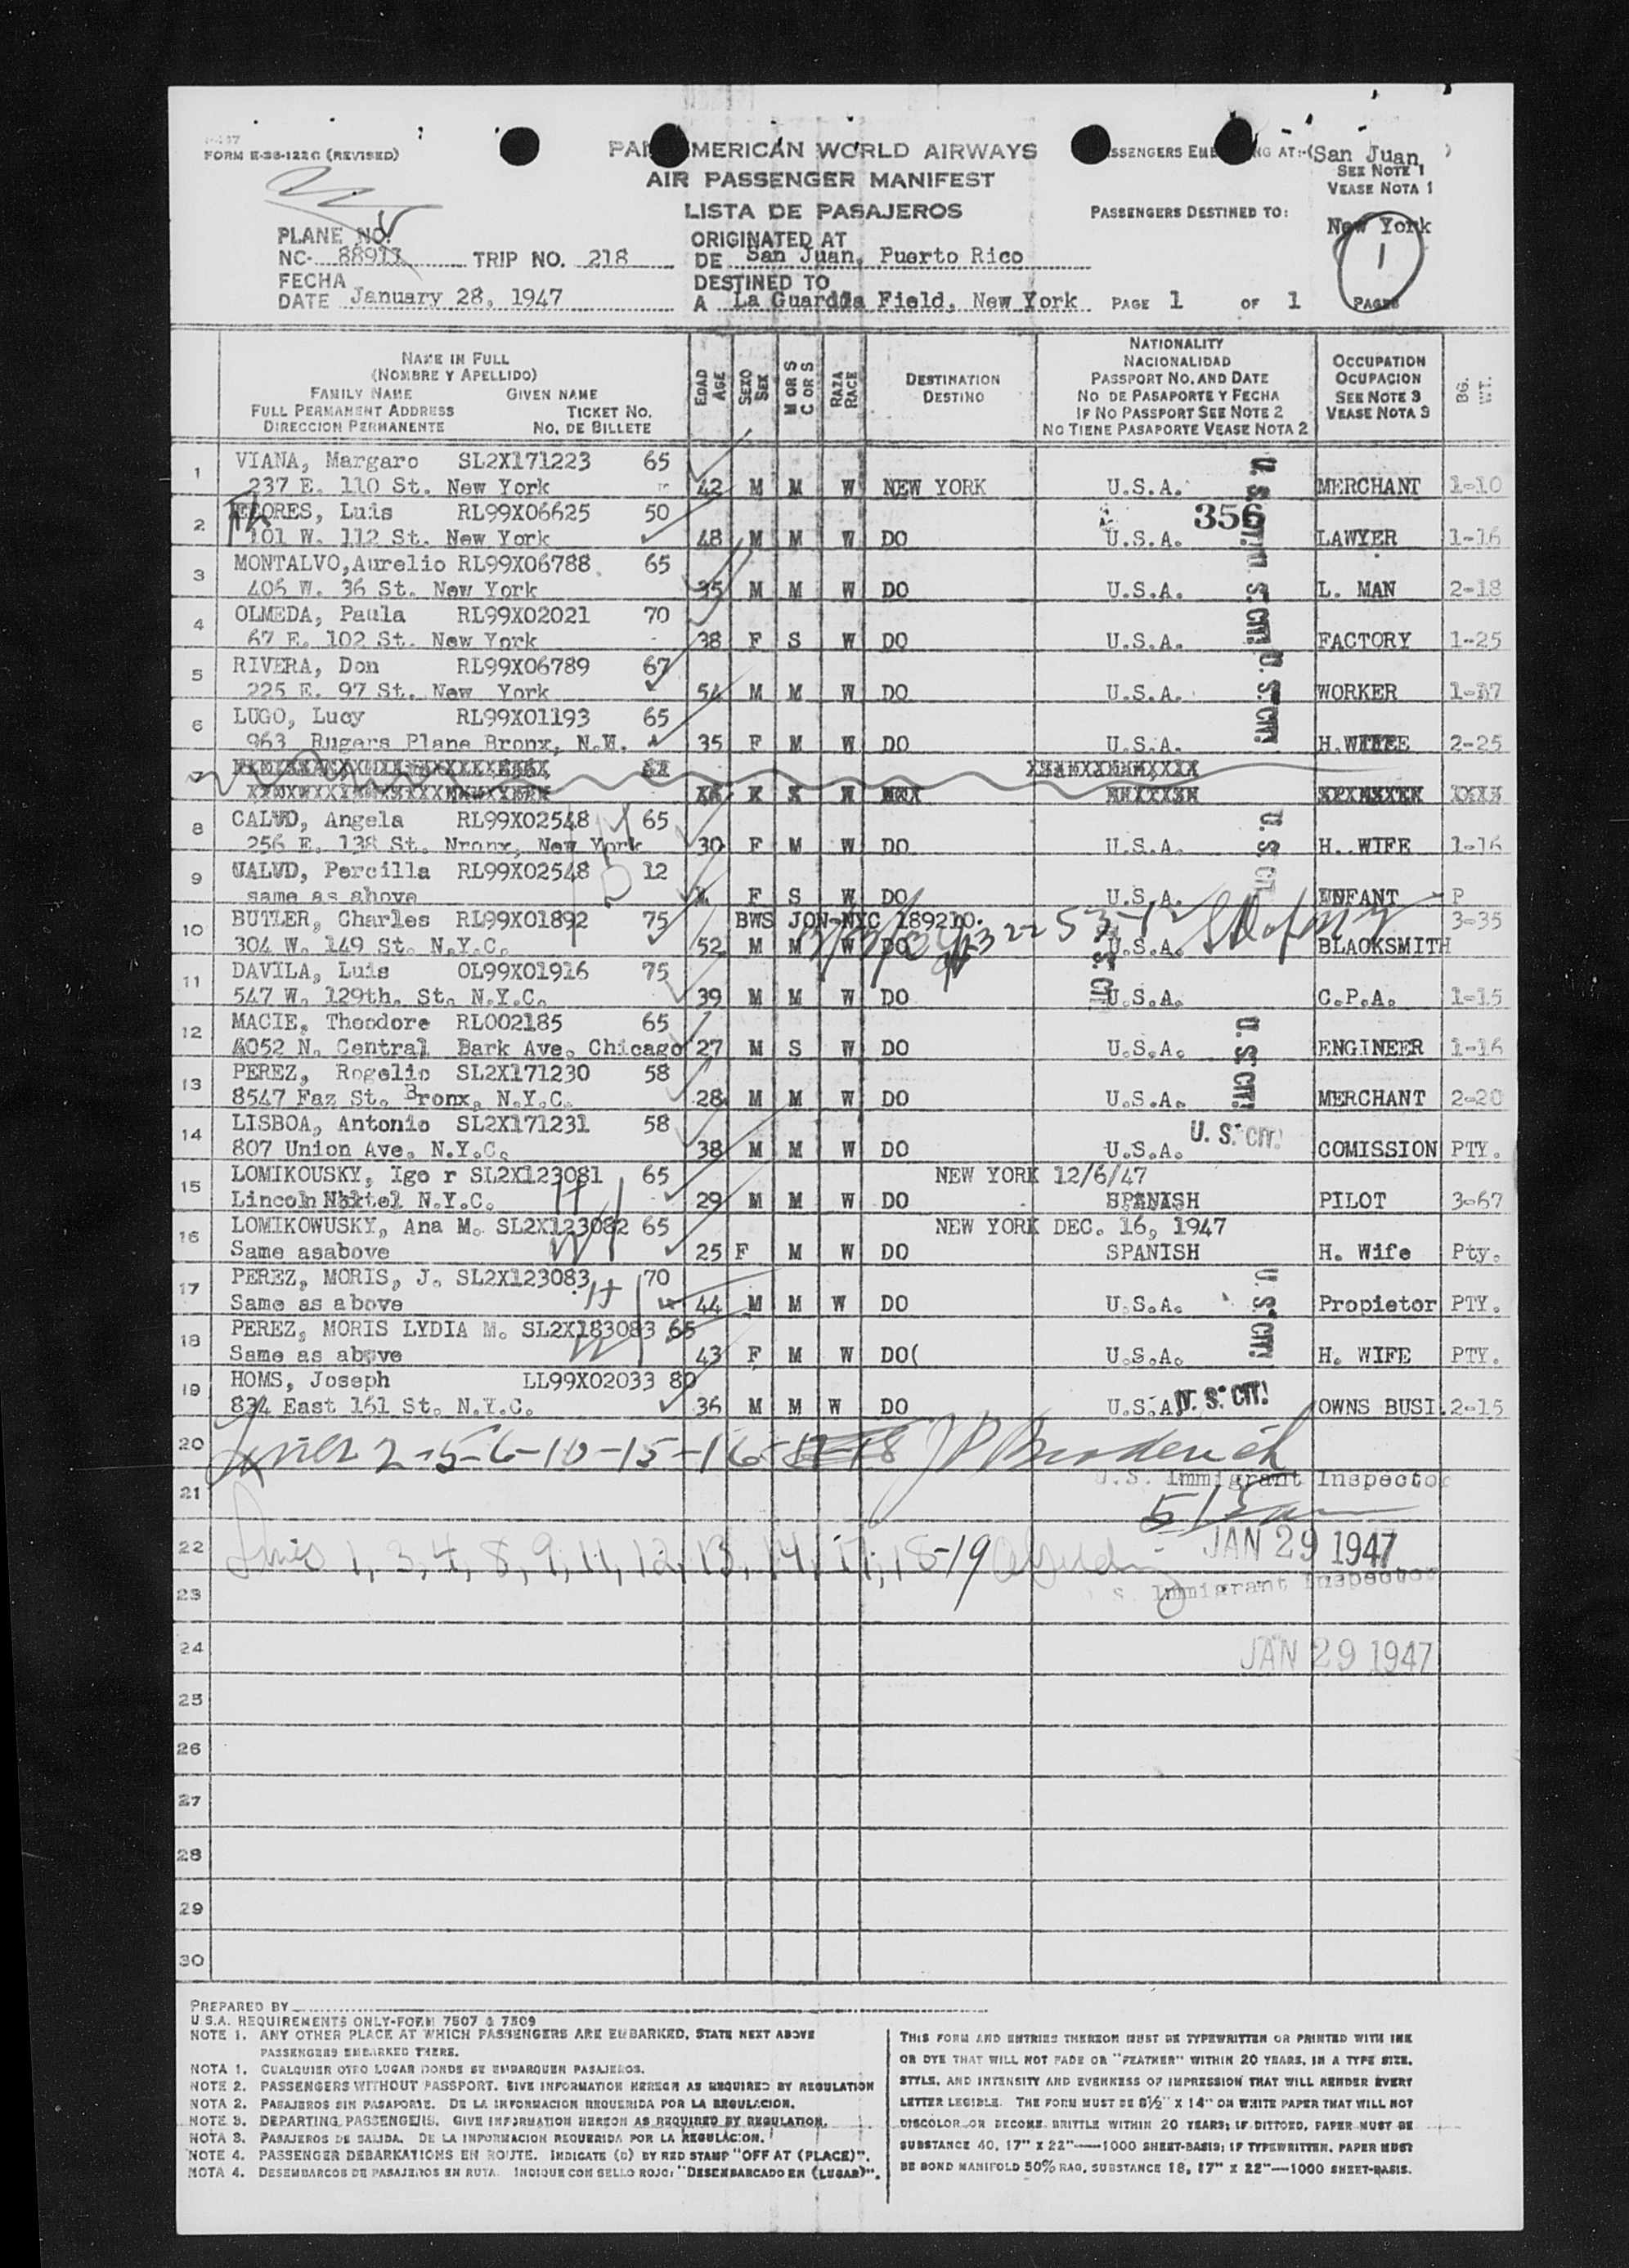 FORM E-38-122G (REVISED)
PAN AMERICAN WORLD AIRWAYS
AIR PASSENGER MANIFEST
LISTA DE PASAJEROS
PASSENGERS EMBARKING AT:-(San Juan )
SEE NOTE 1
VEASE NOTA 1
PASSENGERS DESTINED TO:
New York
1
PLANE NO.
NC- 88911 TRIP NO. 218
FECHA
DATE January 28, 1947
ORIGINATED AT
DE San Juan, Puerto Rico
DESTINED TO
A La Guardia Field, New York PAGE 1 OF 1 PAGES
NAME IN FULL
(NOMBRE Y APELLIDO)
FAMILY NAME GIVEN NAME
FULL PERMANENT ADDRESS TICKET NO.
DIRECCION PERMANENTE NO. DE BILLETE
EDAD AGE
SEXO SEX
M OR S C OR S
RAZA RACE
DESTINATION
DESTINO
NATIONALITY
NACIONALIDAD
PASSPORT NO. AND DATE
NO DE PASAPORTE Y FECHA
IF NO PASSPORT SEE NOTE 2
NO TIENE PASAPORTE VEASE NOTA 2
OCCUPATION
OCUPACION
SEE NOTE 3
VEASE NOTA 3
BG. WT.
1 VIANA, Margaro SL2X171223 65
237 E. 110 St. New York 42 M M W NEW YORK U.S.A. MERCHANT 1-10
2 FLORES, Luis RL99X06625 50 356
101 W. 112 St. New York 48 M M W DO U.S.A. LAWYER 1-16
3 MONTALVO,Aurelio RL99X06788 65
406 W. 36 St. New York 35 M M W DO U.S.A. L. MAN 2-18
4 OLMEDA, Paula RL99X02021 70
67 E. 102 St. New York 38 F S W DO U.S.A. FACTORY 1-25
5 RIVERA, Don RL99X06789 67
225 E. 97 St. New York 54 M M W DO U.S.A. WORKER 1-17
6 LUGO, Lucy RL99X01193 65
963 Rugers Plane Bronx, N.W. 35 F M W DO U.S.A. H.WIFE 2-25
7
8 CALVD, Angela RL99X02548 65
256 E. 138 St. Nronx, New York 30 F M W DO U.S.A. H. WIFE 1-16
9 UALVD, Percilla RL99X02548 12
same as above F S W DO U.S.A. INFANT P
10 BUTLER, Charles RL99X01892 75 BWS JON-NYC 189210. 3-35
304 W. 149 St. N.Y.C. 52 M M W DO U.S.A. BLACKSMITH
11 DAVILA, Luis OL99X01916 75
547 W. 129th. St. N.Y.C. 39 M M W DO U.S.A. C.P.A. 1-15
12 MACIE, Theodore RL002185 65
4052 N. Central Bark Ave. Chicago 27 M S W DO U.S.A. ENGINEER 1-16
13 PEREZ, Rogelio SL2X171230 58
8547 Faz St. Bronx, N.Y.C. 28 M M W DO U.S.A. MERCHANT 2-20
14 LISBOA, Antonio SL2X171231 58
807 Union Ave. N.Y.C. 38 M M W DO U.S.A. U. S. CIT! COMISSION PTY.
15 LOMIKOUSKY, Igo r SL2X123081 65 NEW YORK 12/6/47
Lincoln Hotel N.Y.C. 29 M M W DO SPANISH PILOT 3-67
16 LOMIKOWUSKY, Ana M. SL2X123082 65 NEW YORK DEC. 16, 1947
Same asabove 25 F M W DO SPANISH H. Wife Pty.
17 PEREZ, MORIS, J. SL2X123083 70
Same as above 44 M M W DO U.S.A. Propietor PTY.
18 PEREZ, MORIS LYDIA M. SL2X183083 65
Same as above 43 F M W DO( U.S.A. H. WIFE PTY.
19 HOMS, Joseph LL99X02033 80
834 East 161 St. N.Y.C. 36 M M W DO U.S.A. U. S. CIT! OWNS BUSI. 2-15
20 Lines 2-5-6-10-15-16-17-18 J P Broderick
U.S. Immigrant Inspector
21
22 Lines 1, 3, 4, 8, 9, 11, 12, 13, 14, 17, 18-19 JAN 29 1947
S. Immigrant Inspector
23
24 JAN 29 1947
25
26
27
28
29
30
PREPARED BY
U.S.A. REQUIREMENTS ONLY-FORM 7507 & 7509
NOTE 1. ANY OTHER PLACE AT WHICH PASSENGERS ARE EMBARKED, STATE NEXT ABOVE
PASSENGERS EMBARKED THERE.
NOTA 1. CUALQUIER OTRO LUGAR DONDE SE EMBARQUEN PASAJEROS.
NOTE 2. PASSENGERS WITHOUT PASSPORT. GIVE INFORMATION HEREON AS REQUIRED BY REGULATION
NOTA 2. PASAJEROS SIN PASAPORTE. DE LA INFORMACION REQUERIDA POR LA REGULACION.
NOTE 3. DEPARTING PASSENGERS. GIVE INFORMATION HEREON AS REQUIRED BY REGULATION.
NOTA 3. PASAJEROS DE SALIDA. DE LA INFORMACION REQUERIDA POR LA REGULACION.
NOTE 4. PASSENGER DEBARKATIONS EN ROUTE. INDICATE (D) BY RED STAMP "OFF AT (PLACE)".
NOTA 4. DESEMBARCOS DE PASAJEROS EN RUTA. INDIQUE CON SELLO ROJO: "DESEMBARCADO EN (LUGAR)".
THIS FORM AND ENTRIES THEREON MUST BE TYPEWRITTEN OR PRINTED WITH INK
OR DYE THAT WILL NOT FADE OR "FEATHER" WITHIN 20 YEARS, IN A TYPE SIZE,
STYLE, AND INTENSITY AND EVENNESS OF IMPRESSION THAT WILL RENDER EVERY
LETTER LEGIBLE. THE FORM MUST BE 8½" X 14" ON WHITE PAPER THAT WILL NOT
DISCOLOR OR BECOME BRITTLE WITHIN 20 YEARS; IF DITTOED, PAPER MUST BE
SUBSTANCE 40, 17" X 22"—1000 SHEET-BASIS; IF TYPEWRITTEN, PAPER MUST
BE BOND MANIFOLD 50% RAG, SUBSTANCE 18, 17" X 22"—1000 SHEET-BASIS.